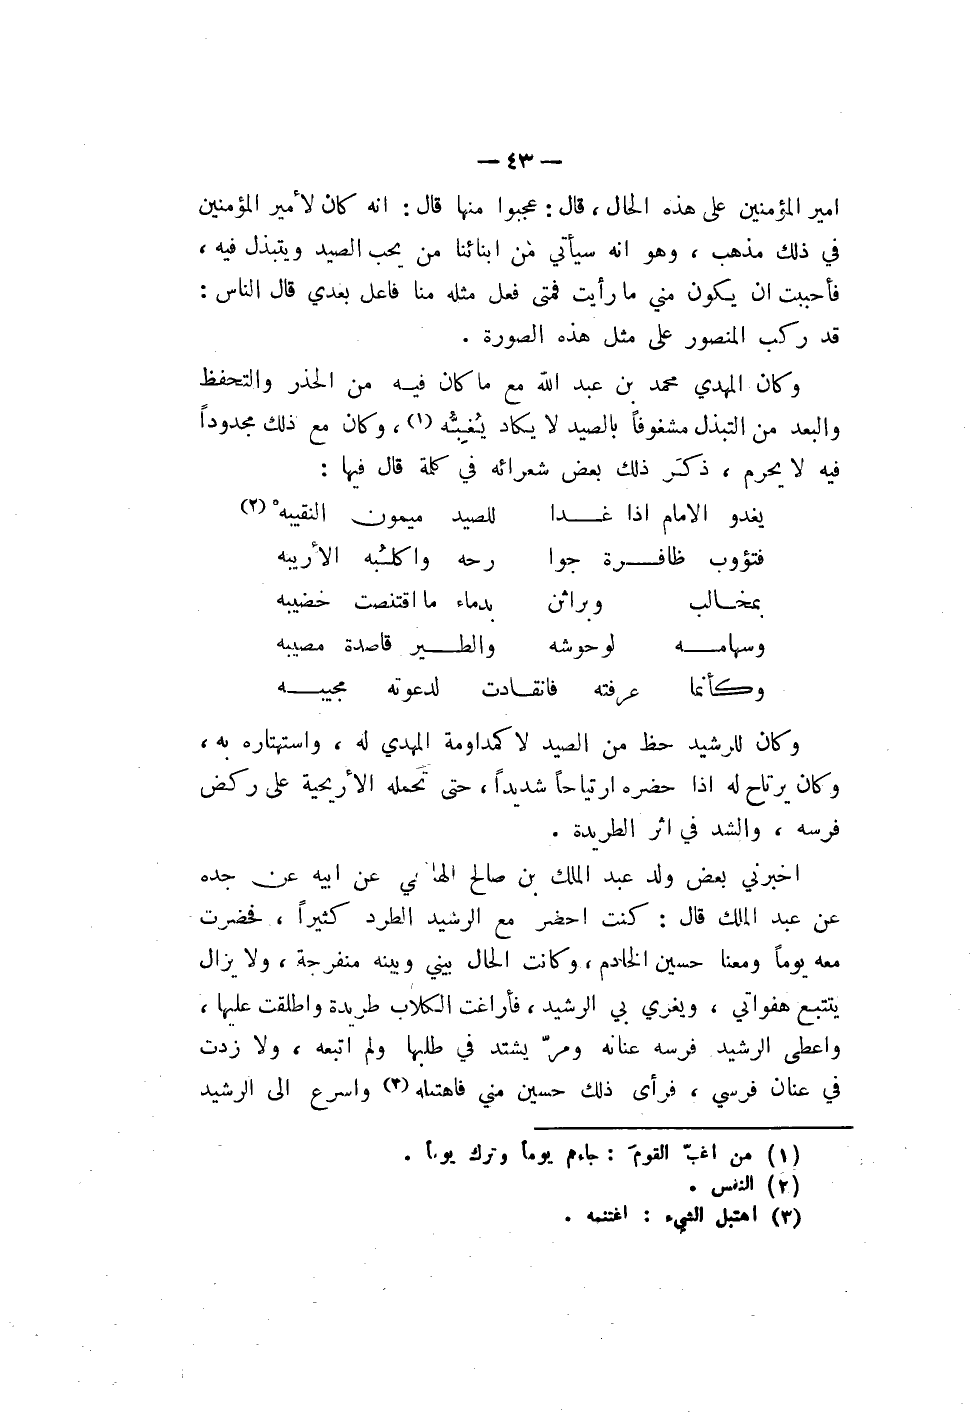 — ٤٣ —
امير المؤمنين على هذه الحال ، قال : عجبوا منها قال : انه كان لأمير المؤمنين
في ذلك مذهب ، وهو انه سيأتي من ابنائنا من يحب الصيد ويتبذل فيه ،
فأحببت ان يكون مني ما رأيت فمتى فعل مثله منا فاعل بعدي قال الناس :
قد ركب المنصور على مثل هذه الصورة .
وكان المهدي محمد بن عبد الله مع ما كان فيه من الحذر والتحفظ
والبعد من التبذل مشغوفاً بالصيد لا يكاد يُغِبُّه (١) ، وكان مع ذلك مجدوداً
فيه لا يحرم ، ذكَر ذلك بعض شعرائه في كلمة قال فيها :
يغدو الامام اذا غـــدا للصيد ميمون النقيبه (٢)
فتؤوب ظافـــرة جوا رحه واكلُبه الأريبه
بمخـالب وبراثن بدماء ما اقتنصت خضيبه
وسهامـــه لوحوشه والطـــير قاصدة مصيبه
وكأنما عرفته فانقـادت لدعوته مجيبـــه
وكان للرشيد حظ من الصيد لا كمداومة المهدي له ، واستهتاره به ،
وكان يرتاح له اذا حضره ارتياحاً شديداً ، حتى تحمله الأريحية على ركض
فرسه ، والشد في اثر الطريدة .
اخبرني بعض ولد عبد الملك بن صالح الهاشمي عن ابيه عن جده
عن عبد الملك قال : كنت احضر مع الرشيد الطرد كثيراً ، فحضرت
معه يوماً ومعنا حسين الخادم ، وكانت الحال بيني وبينه منفرجة ، ولا يزال
يتتبع هفواتي ، ويغري بي الرشيد ، فأراغت الكلاب طريدة واطلقت عليها ،
واعطى الرشيد فرسه عنانه ومرّ يشتد في طلبها ولم اتبعه ، ولا زدت
في عنان فرسي ، فرأى ذلك حسين مني فاهتبله (٣) واسرع الى الرشيد
(١) من اغبّ القومَ : جاءهم يوماً وترك يوماً .
(٢) النفس .
(٣) اهتبل الشيء : اغتنمه .